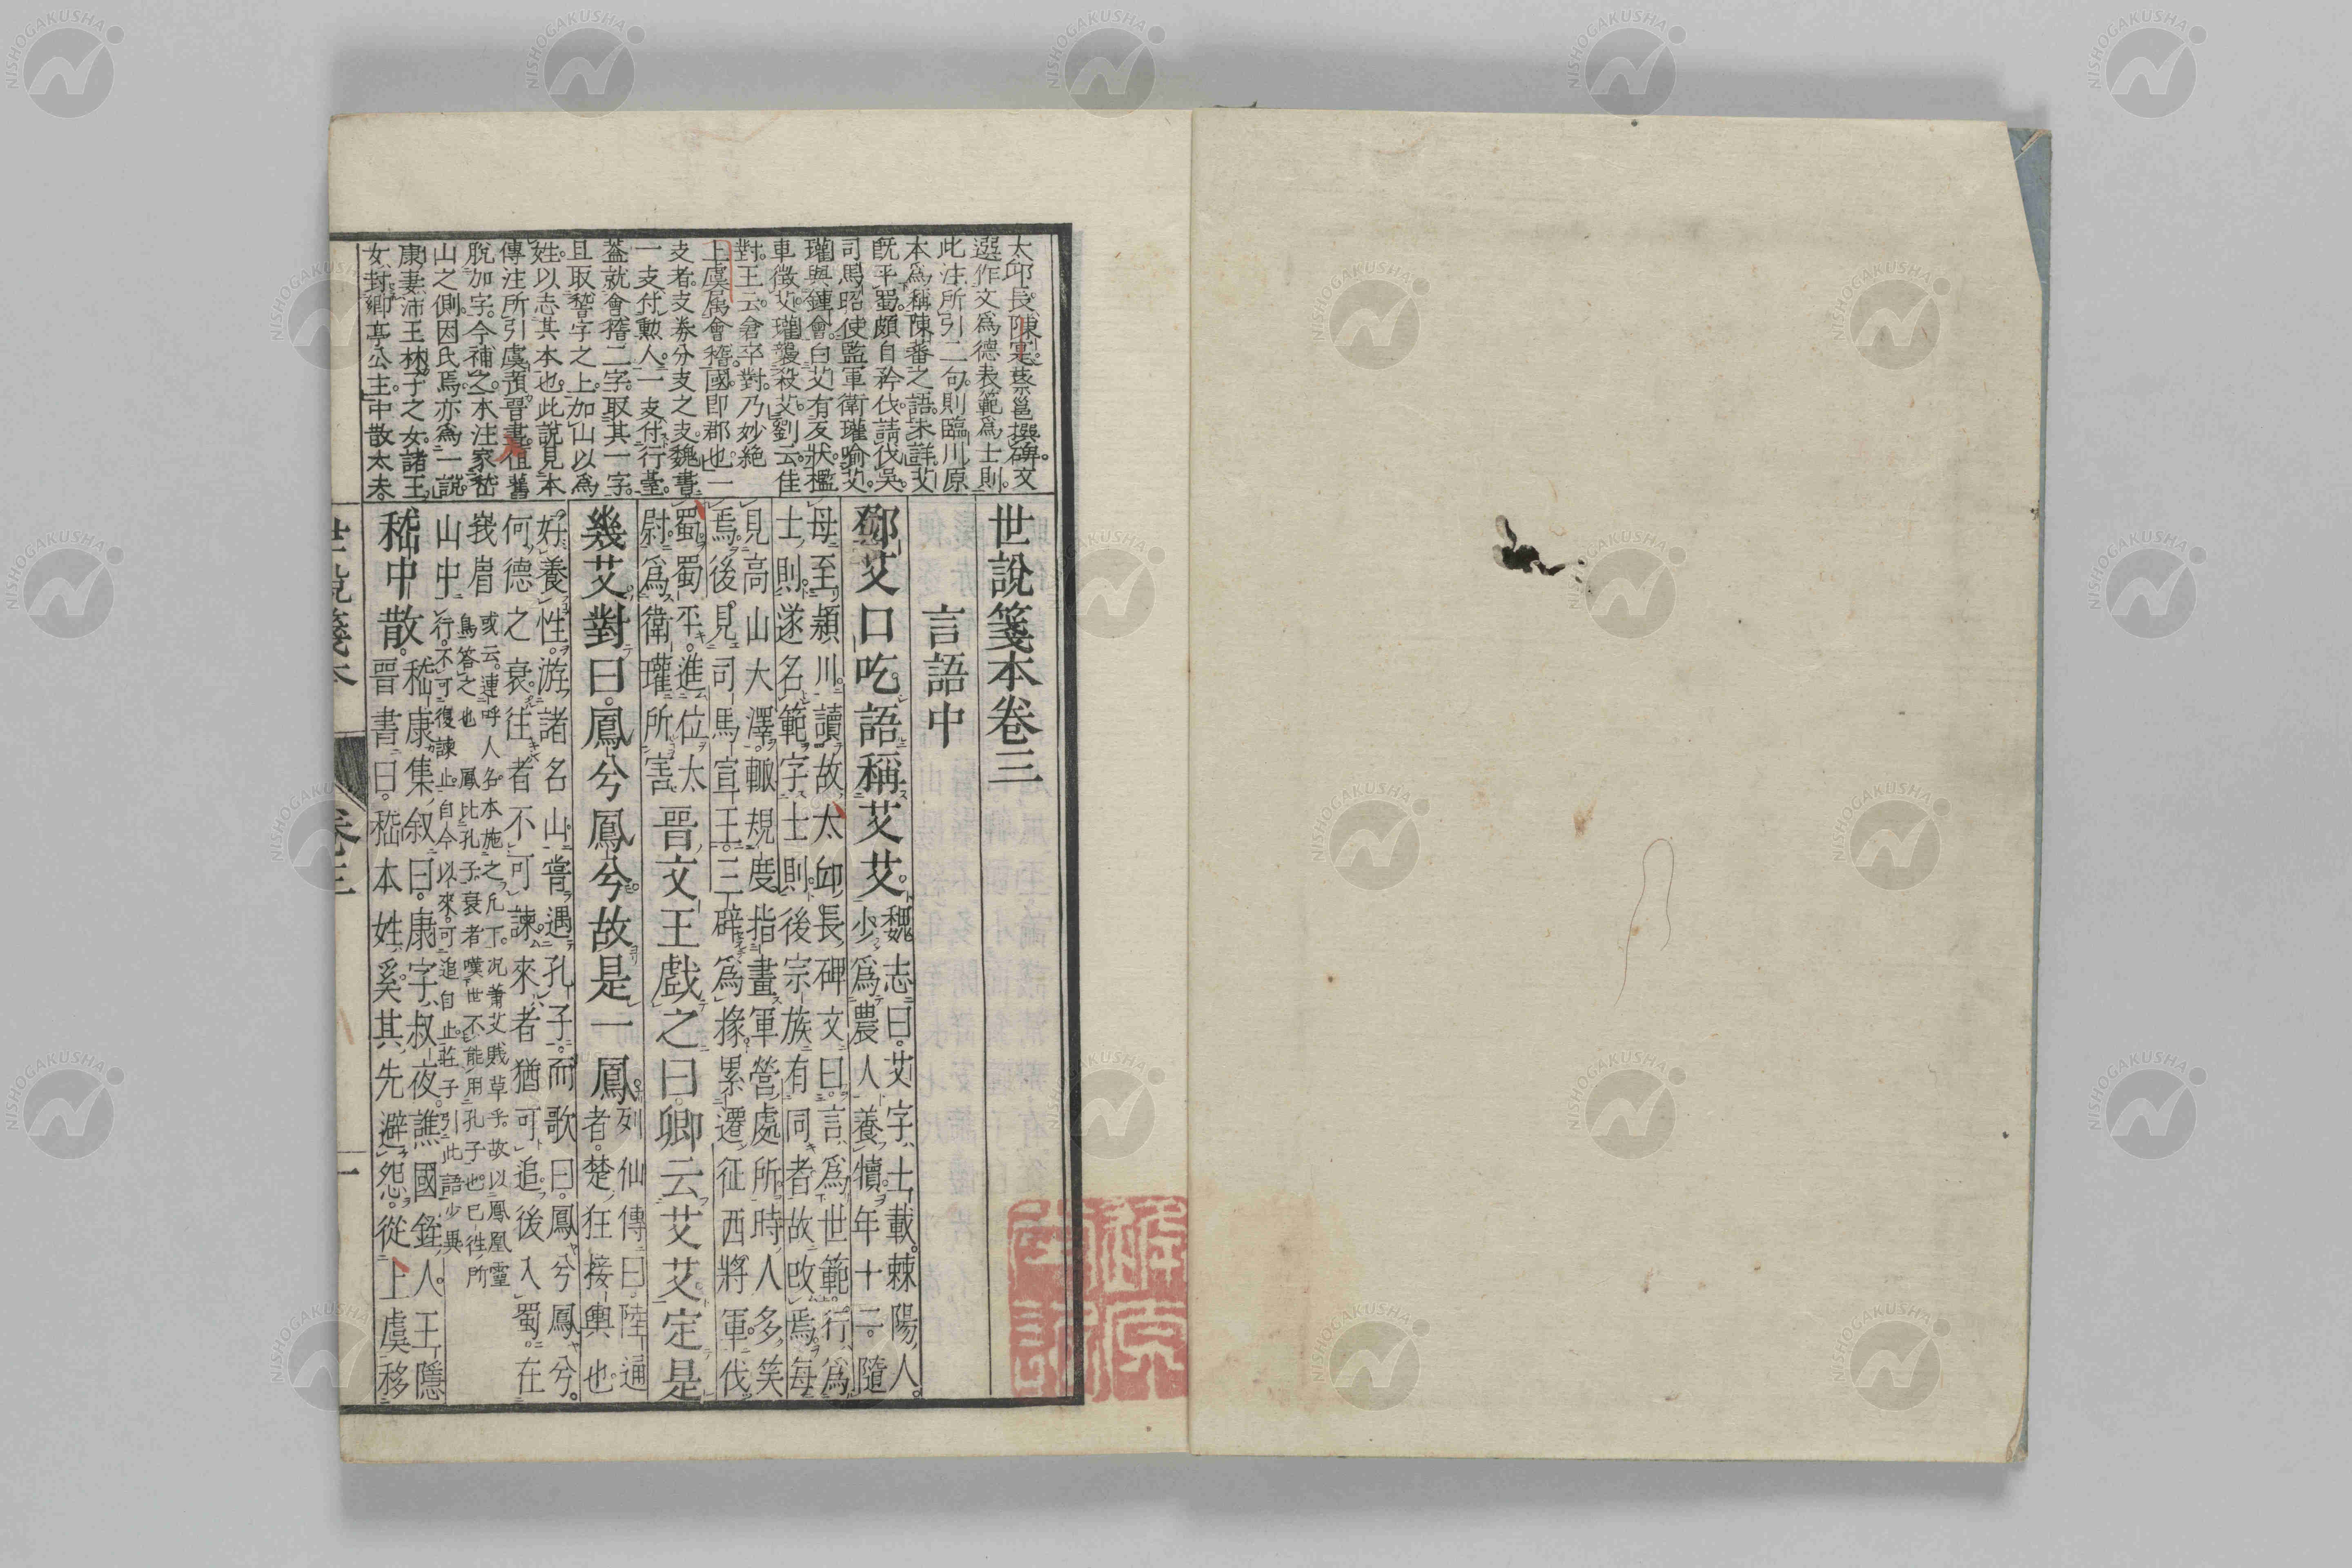 太邱長陳寔蔡邕撰碑文
選作文爲德表範爲士則
此注所引二句則臨川原
本爲稱陳蕃之語未詳艾
既平蜀頗自矜伐請伐吳
司馬昭使監軍衛瓘喻艾
瓘與鍾會白艾有反狀檻
車徵艾瓘襲殺艾劉云佳
對王云倉卒對乃妙絶
上虞属會稽國即郡也一
支者支券分支之支魏書
一支付勲人一支付行臺
蓋就會稽二字取其一字
且取嵆字之上加山以爲
姓以志其本也此說見本
傳注所引虞預晉書徂舊
脫加字今補之本注家嵇
山之側因氏焉亦爲一說
康妻沛王林子之女諸王
女封鄉亭公主中散太夫
世說箋本卷三
言語中
鄧艾口吃語稱艾艾
魏志曰艾字士載棘陽人
少爲農人養犢年十二隨
母至潁川讀故太邱長碑文曰言爲世範行爲
士則遂名範字士則後宗族有同者故改焉每
見高山大澤輙規度指畫軍營處所時人多笑
焉後見司馬宣王三辟爲掾累遷征西將軍伐
蜀蜀平進位太
尉爲衛瓘所害
晉文王戲之曰卿云艾艾定是
幾艾對曰鳳兮鳳兮故是一鳳
列仙傳曰陸通
者楚狂接輿也
好養性游諸名山嘗遇孔子而歌曰鳳兮鳳兮
何德之衰往者不可諫來者猶可追後入蜀在
峩眉
山中
或云連呼人名本施之凡下况蕭艾賎草乎故以鳳凰靈
鳥答之也 鳳比孔子衰者嘆世不能用孔子也已往所
行不可復諫止自今以來可追自止莊子引此語少異
嵇中散
嵇康集叙曰康字叔夜譙國銍人王隱
晉書曰嵇本姓奚其先避怨從上虞移
世說箋本 卷三 一